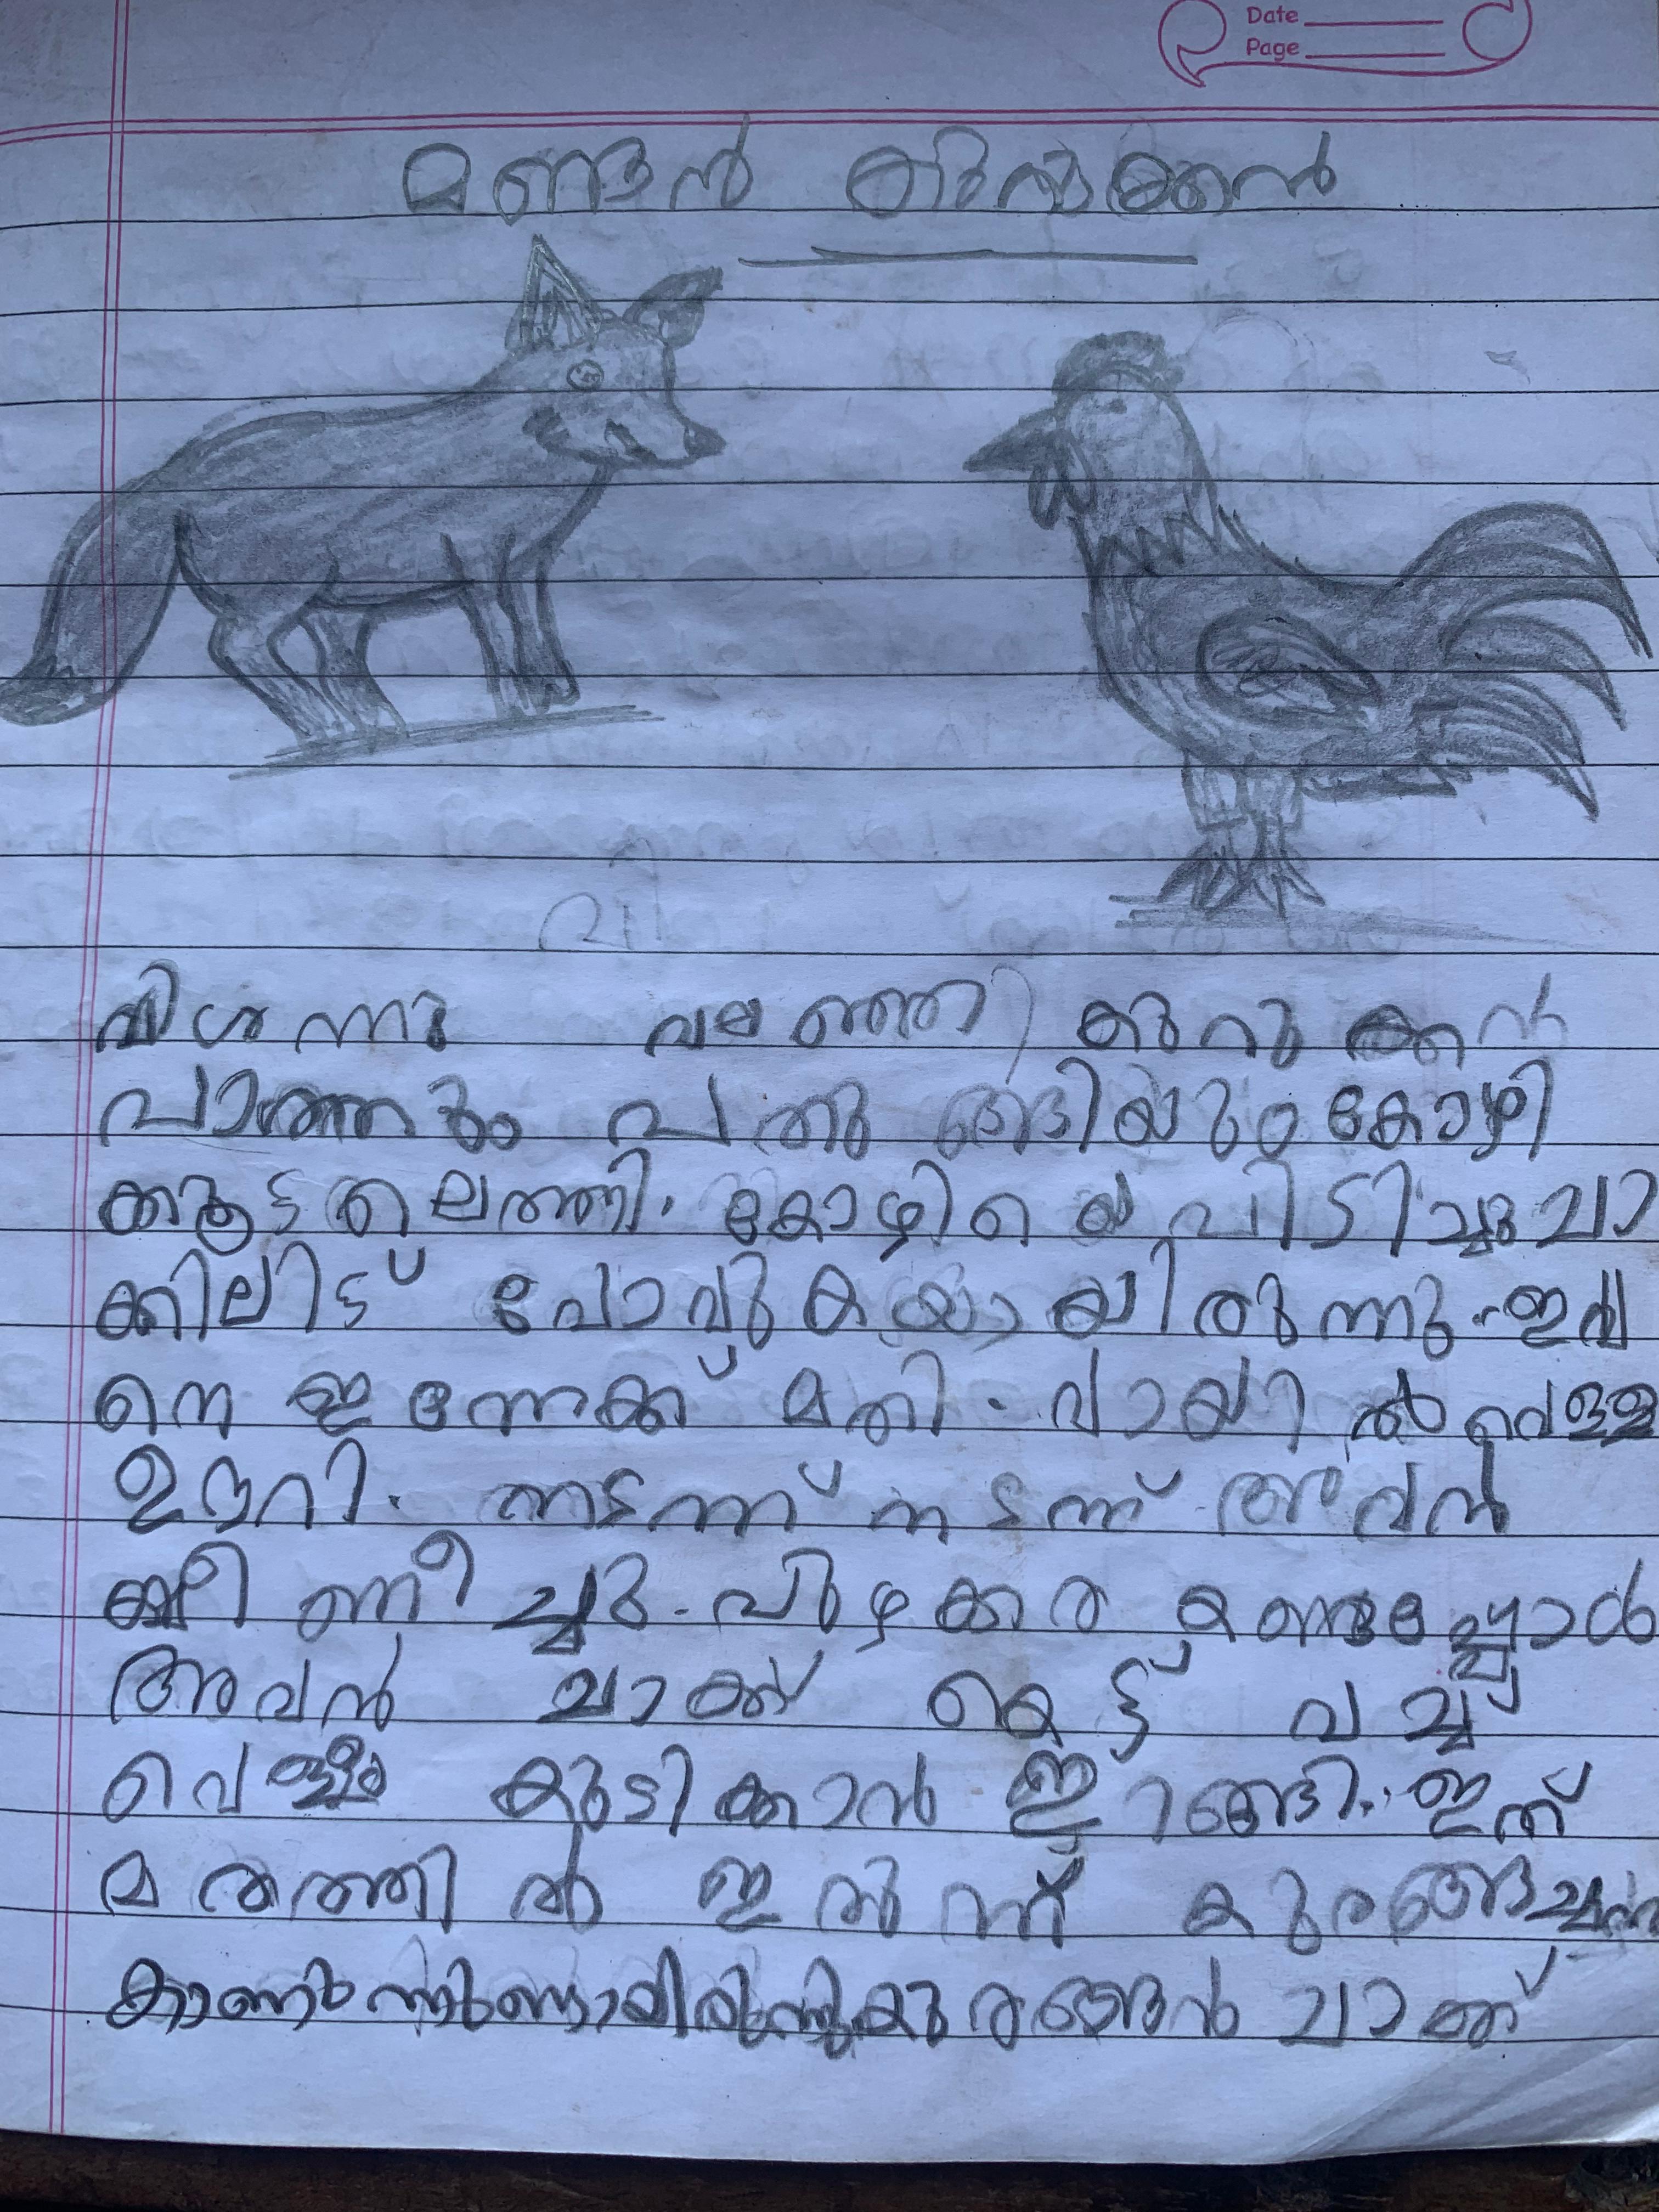 Date
Page
മണ്ടൻ കുറുക്കൻ
വി
വിശന്നു വലഞ്ഞ കുറുക്കൻ
പാത്തും പതുങ്ങിയും കോഴി
ക്കൂട്ടിലെത്തി. കോഴിയെ പിടിച്ചു ചാ
ക്കിലിട്ട് പോവുകയായിരുന്നു. ഇവ
നെ ഇന്നേക്ക് മതി. വായിൽ വെള്ള
ഊറി. നടന്ന് നടന്ന് അവൻ
ക്ഷീണിച്ചു. പുഴക്കര കണ്ടപ്പോൾ
അവൻ ചാക്ക് കെട്ട് വച്ച്
വെള്ളം കുടിക്കാൻ ഇറങ്ങി. ഇത്
മരത്തിൽ ഇരുന്ന് കുരങ്ങച്ചൻ
കാണുന്നുണ്ടായിരുന്നു കുരങ്ങൻ ചാക്ക്